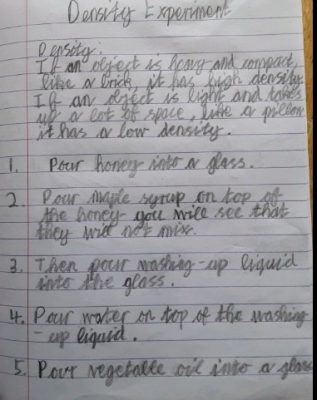 Density Experiment
Density:
If an object is heavy and compact,
like a brick, it has high density
If an object is light and takes
up a lot of space, like a pillow
it has a low density.
1. Pour honey into a glass.
2. Pour maple syrup on top of
the honey you will see that
they will not mix.
3. Then pour washing-up liquid
into the glass.
4. Pour water on top of the washing
-up liquid.
5. Pour vegetable oil into a glass